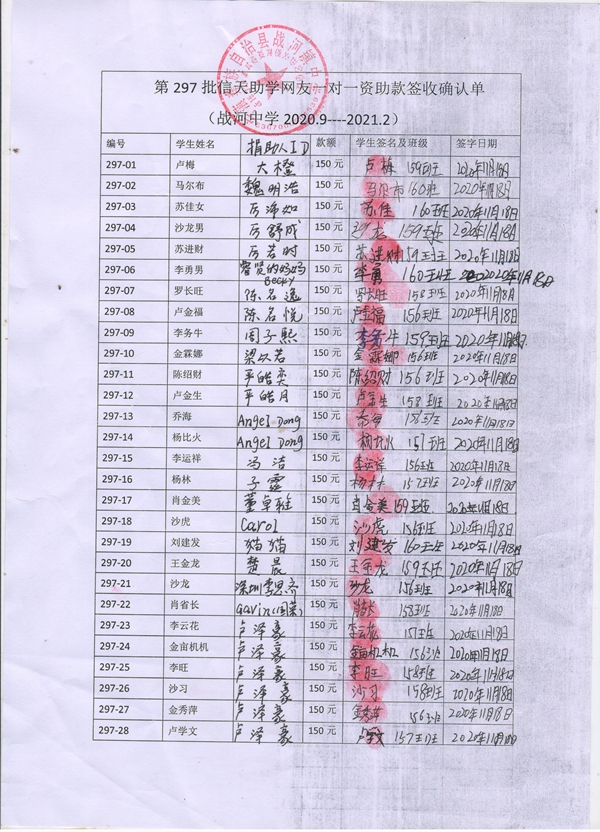 自治县战河镇中
第297批信天助学网友一对一资助款签收确认单
(战河中学2020.9----2021.2)
编号 学生姓名 捐助人ID 款额 学生签名及班级 签字日期
297-01 卢梅 大橙 150元 卢梅 159班 2020年11月18日
297-02 马尔布 魏明浩 150元 马尔布 160班 2020年11月18日
297-03 苏佳女 150元 苏佳 160班 2020年11月18日
297-04 沙龙男 厉舒成 150元 沙龙 159班 2020年11月18日
297-05 苏进财 厉若时 150元 苏进财 159班 2020年11月18日
297-06 李勇男 睿贤的妈妈Becky 150元 李勇 160班 2020年11月18日
297-07 罗长旺 陈名逸 150元 罗长旺 158班 2020年11月18日
297-08 卢金福 陈名悦 150元 卢金福 156班 2020年11月18日
297-09 李务牛 周子熙 150元 李务牛 159班 2020年11月18日
297-10 金霖娜 梁以若 150元 金霖娜 156班 2020年11月18日
297-11 陈绍财 平皓奕 150元 陈绍财 156班 2020年11月18日
297-12 卢金生 平皓月 150元 卢金生 158班 2020年11月18日
297-13 乔海 Angel Dong 150元 乔海 158班 2020年11月18日
297-14 杨比火 Angel Dong 150元 杨比火 157班 2020年11月18日
297-15 李运祥 冯洁 150元 李运祥 156班 2020年11月18日
297-16 杨林 子霏 150元 杨林 157班 2020年11月18日
297-17 肖金美 董卓雅 150元 肖金美 159班 2020年11月18日
297-18 沙虎 Carol 150元 沙虎 156班 2020年11月18日
297-19 刘建发 猫猫 150元 刘建发 160班 2020年11月18日
297-20 王金龙 楚晨 150元 王金龙 159班 2020年11月18日
297-21 沙龙 深圳李思齐 150元 沙龙 156班 2020年11月18日
297-22 肖省长 Gavin 150元 158班 2020年11月18日
297-23 李云花 卢泽豪 150元 李云花 157班 2020年11月18日
297-24 金亩机机 卢泽豪 150元 金亩机机 156班 2020年11月18日
297-25 李旺 卢泽豪 150元 李旺 158班 2020年11月18日
297-26 沙习 卢泽豪 150元 沙习 158班 2020年11月18日
297-27 金秀萍 卢泽豪 150元 金秀萍 156班 2020年11月18日
297-28 卢学文 卢泽豪 150元 卢学文 157班 2020年11月18日